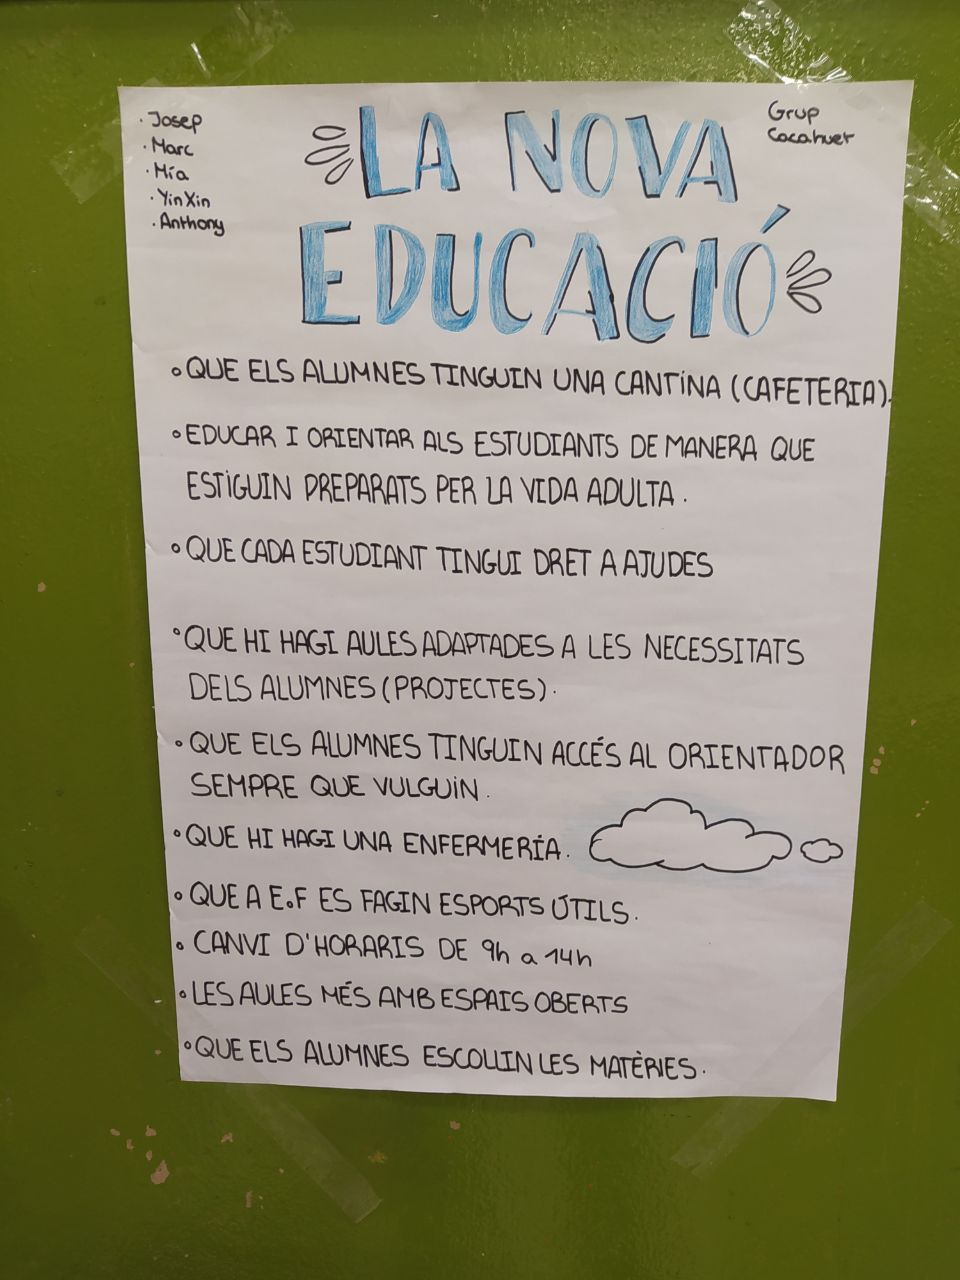 · Josep
· Marc
· Mía
· YinXin
· Anthony
Grup
Cacahuet
LA NOVA
EDUCACIÓ
° QUE ELS ALUMNES TINGUIN UNA CANTINA (CAFETERIA).
° EDUCAR I ORIENTAR ALS ESTUDIANTS DE MANERA QUE
ESTIGUIN PREPARATS PER LA VIDA ADULTA.
° QUE CADA ESTUDIANT TINGUI DRET A AJUDES
° QUE HI HAGI AULES ADAPTADES A LES NECESSITATS
DELS ALUMNES (PROJECTES).
° QUE ELS ALUMNES TINGUIN ACCÉS AL ORIENTADOR
SEMPRE QUE VULGUIN.
° QUE HI HAGI UNA ENFERMERÍA.
° QUE A E.F ES FAGIN ESPORTS ÚTILS.
° CANVI D'HORARIS DE 9h a 14h
° LES AULES MÉS AMB ESPAIS OBERTS
° QUE ELS ALUMNES ESCOLLIN LES MATÈRIES.